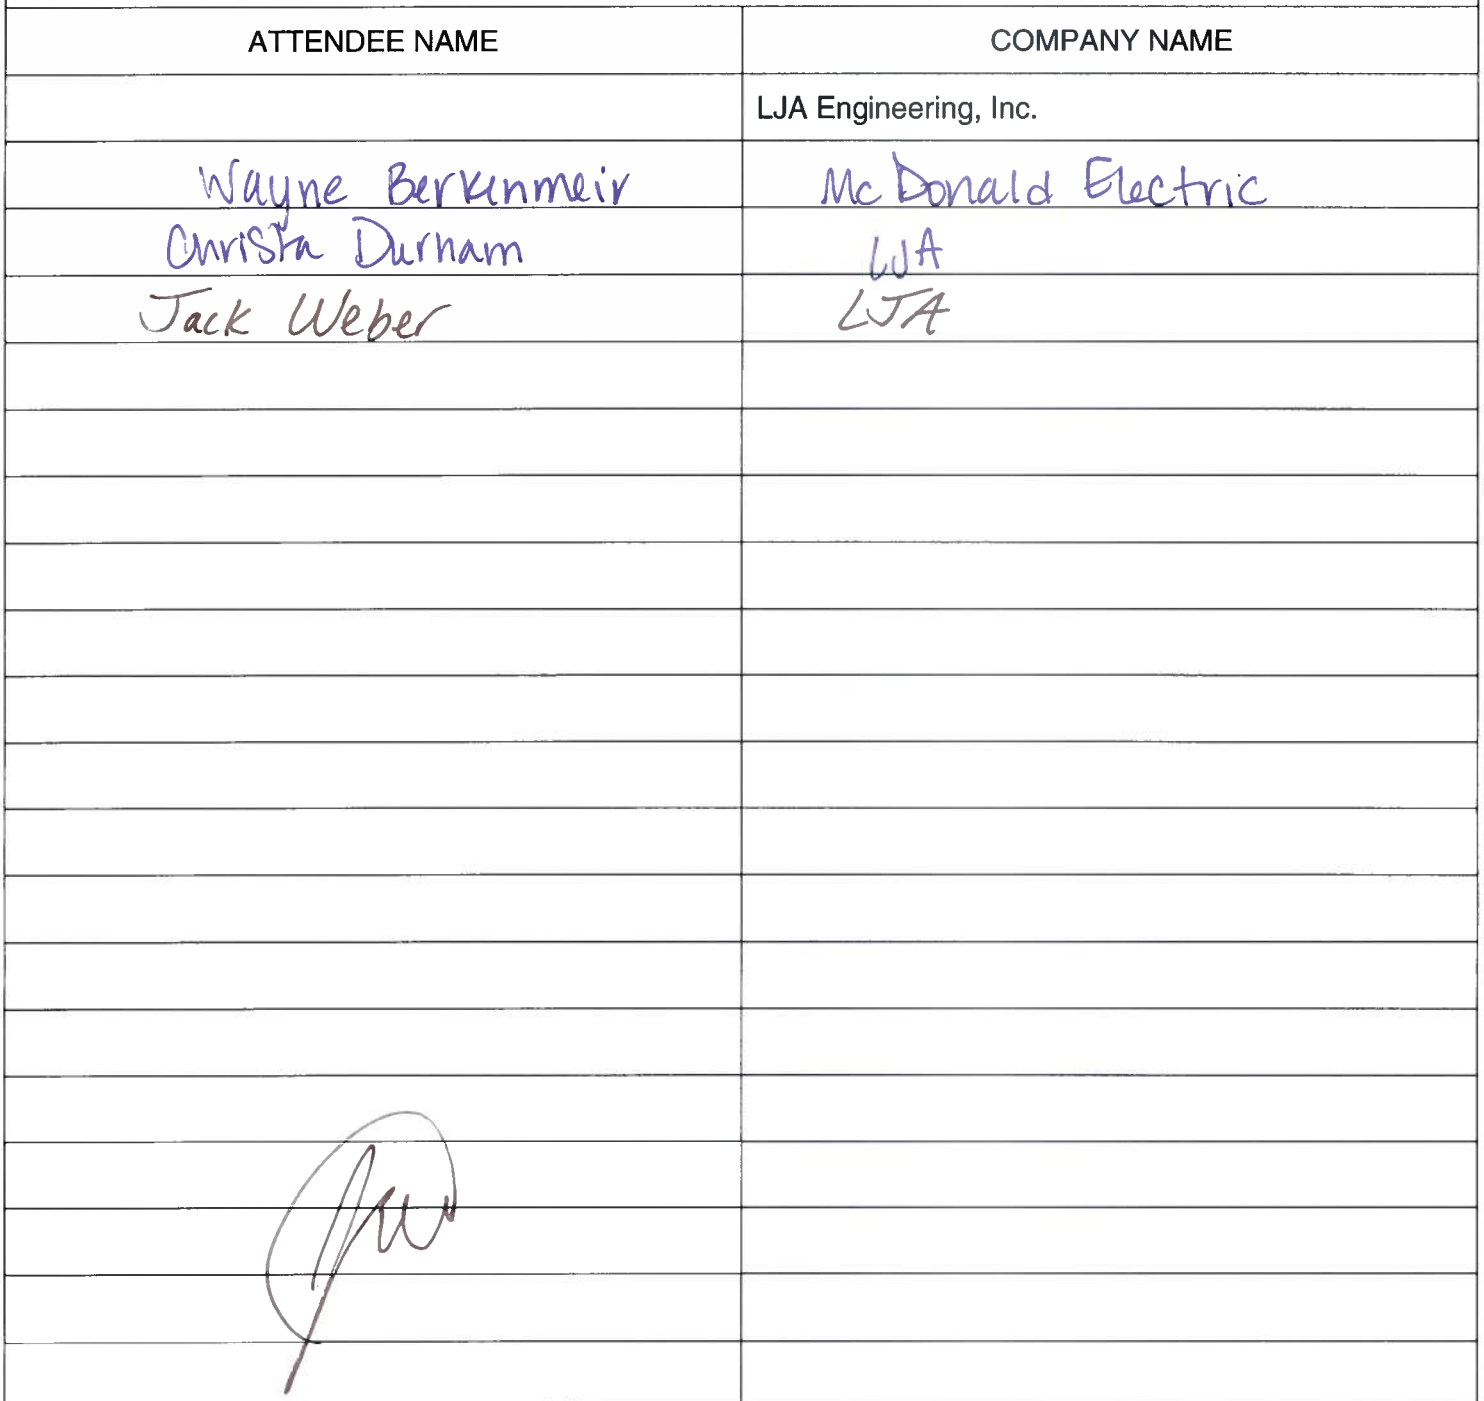 ATTENDEE NAME COMPANY NAME
LJA Engineering, Inc.
Wayne Berkenmeir McDonald Electric
Christa Durham LJA
Jack Weber LJA